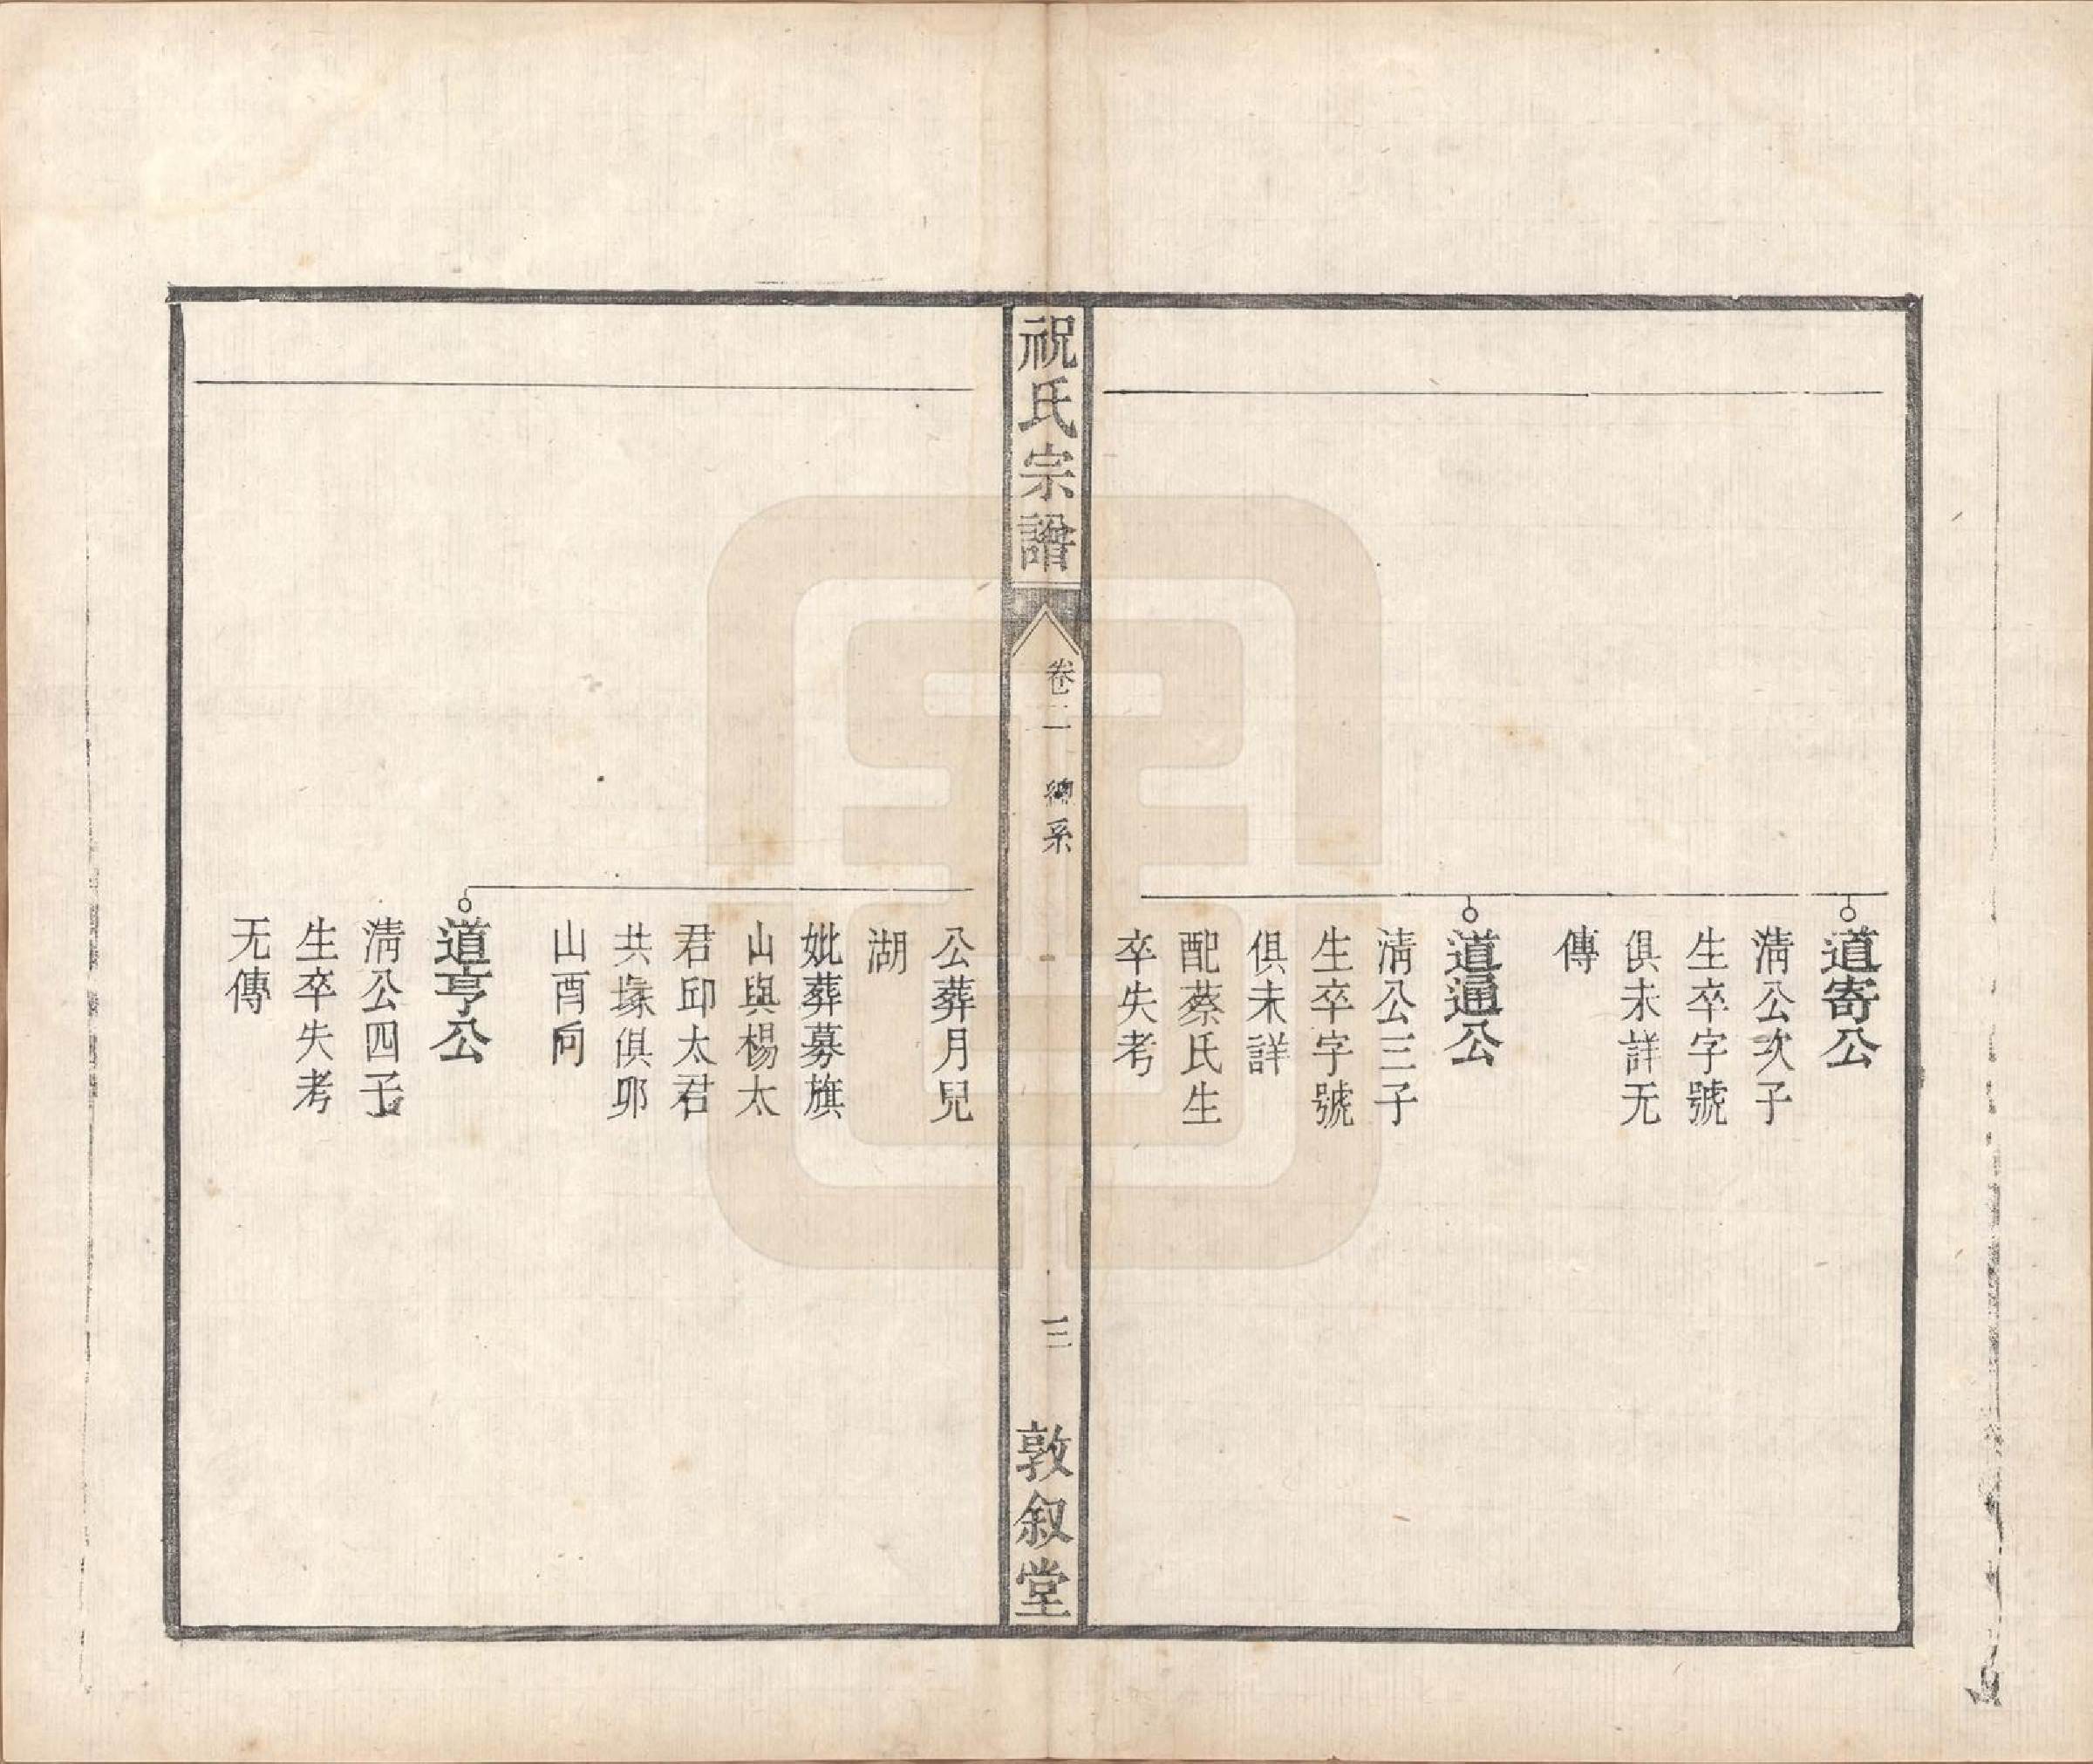 道寄公
淸公次子
生卒字號
俱未詳无
傳
道通公
淸公三子
生卒字號
俱未詳
配蔡氏生
卒失考
祝氏宗譜
卷二
總系
三
敦叙堂
公葬月兒
湖
妣葬募旗
山與楊太
君邱太君
共塚俱卯
山酉向
道亨公
淸公四子
生卒失考
无傳